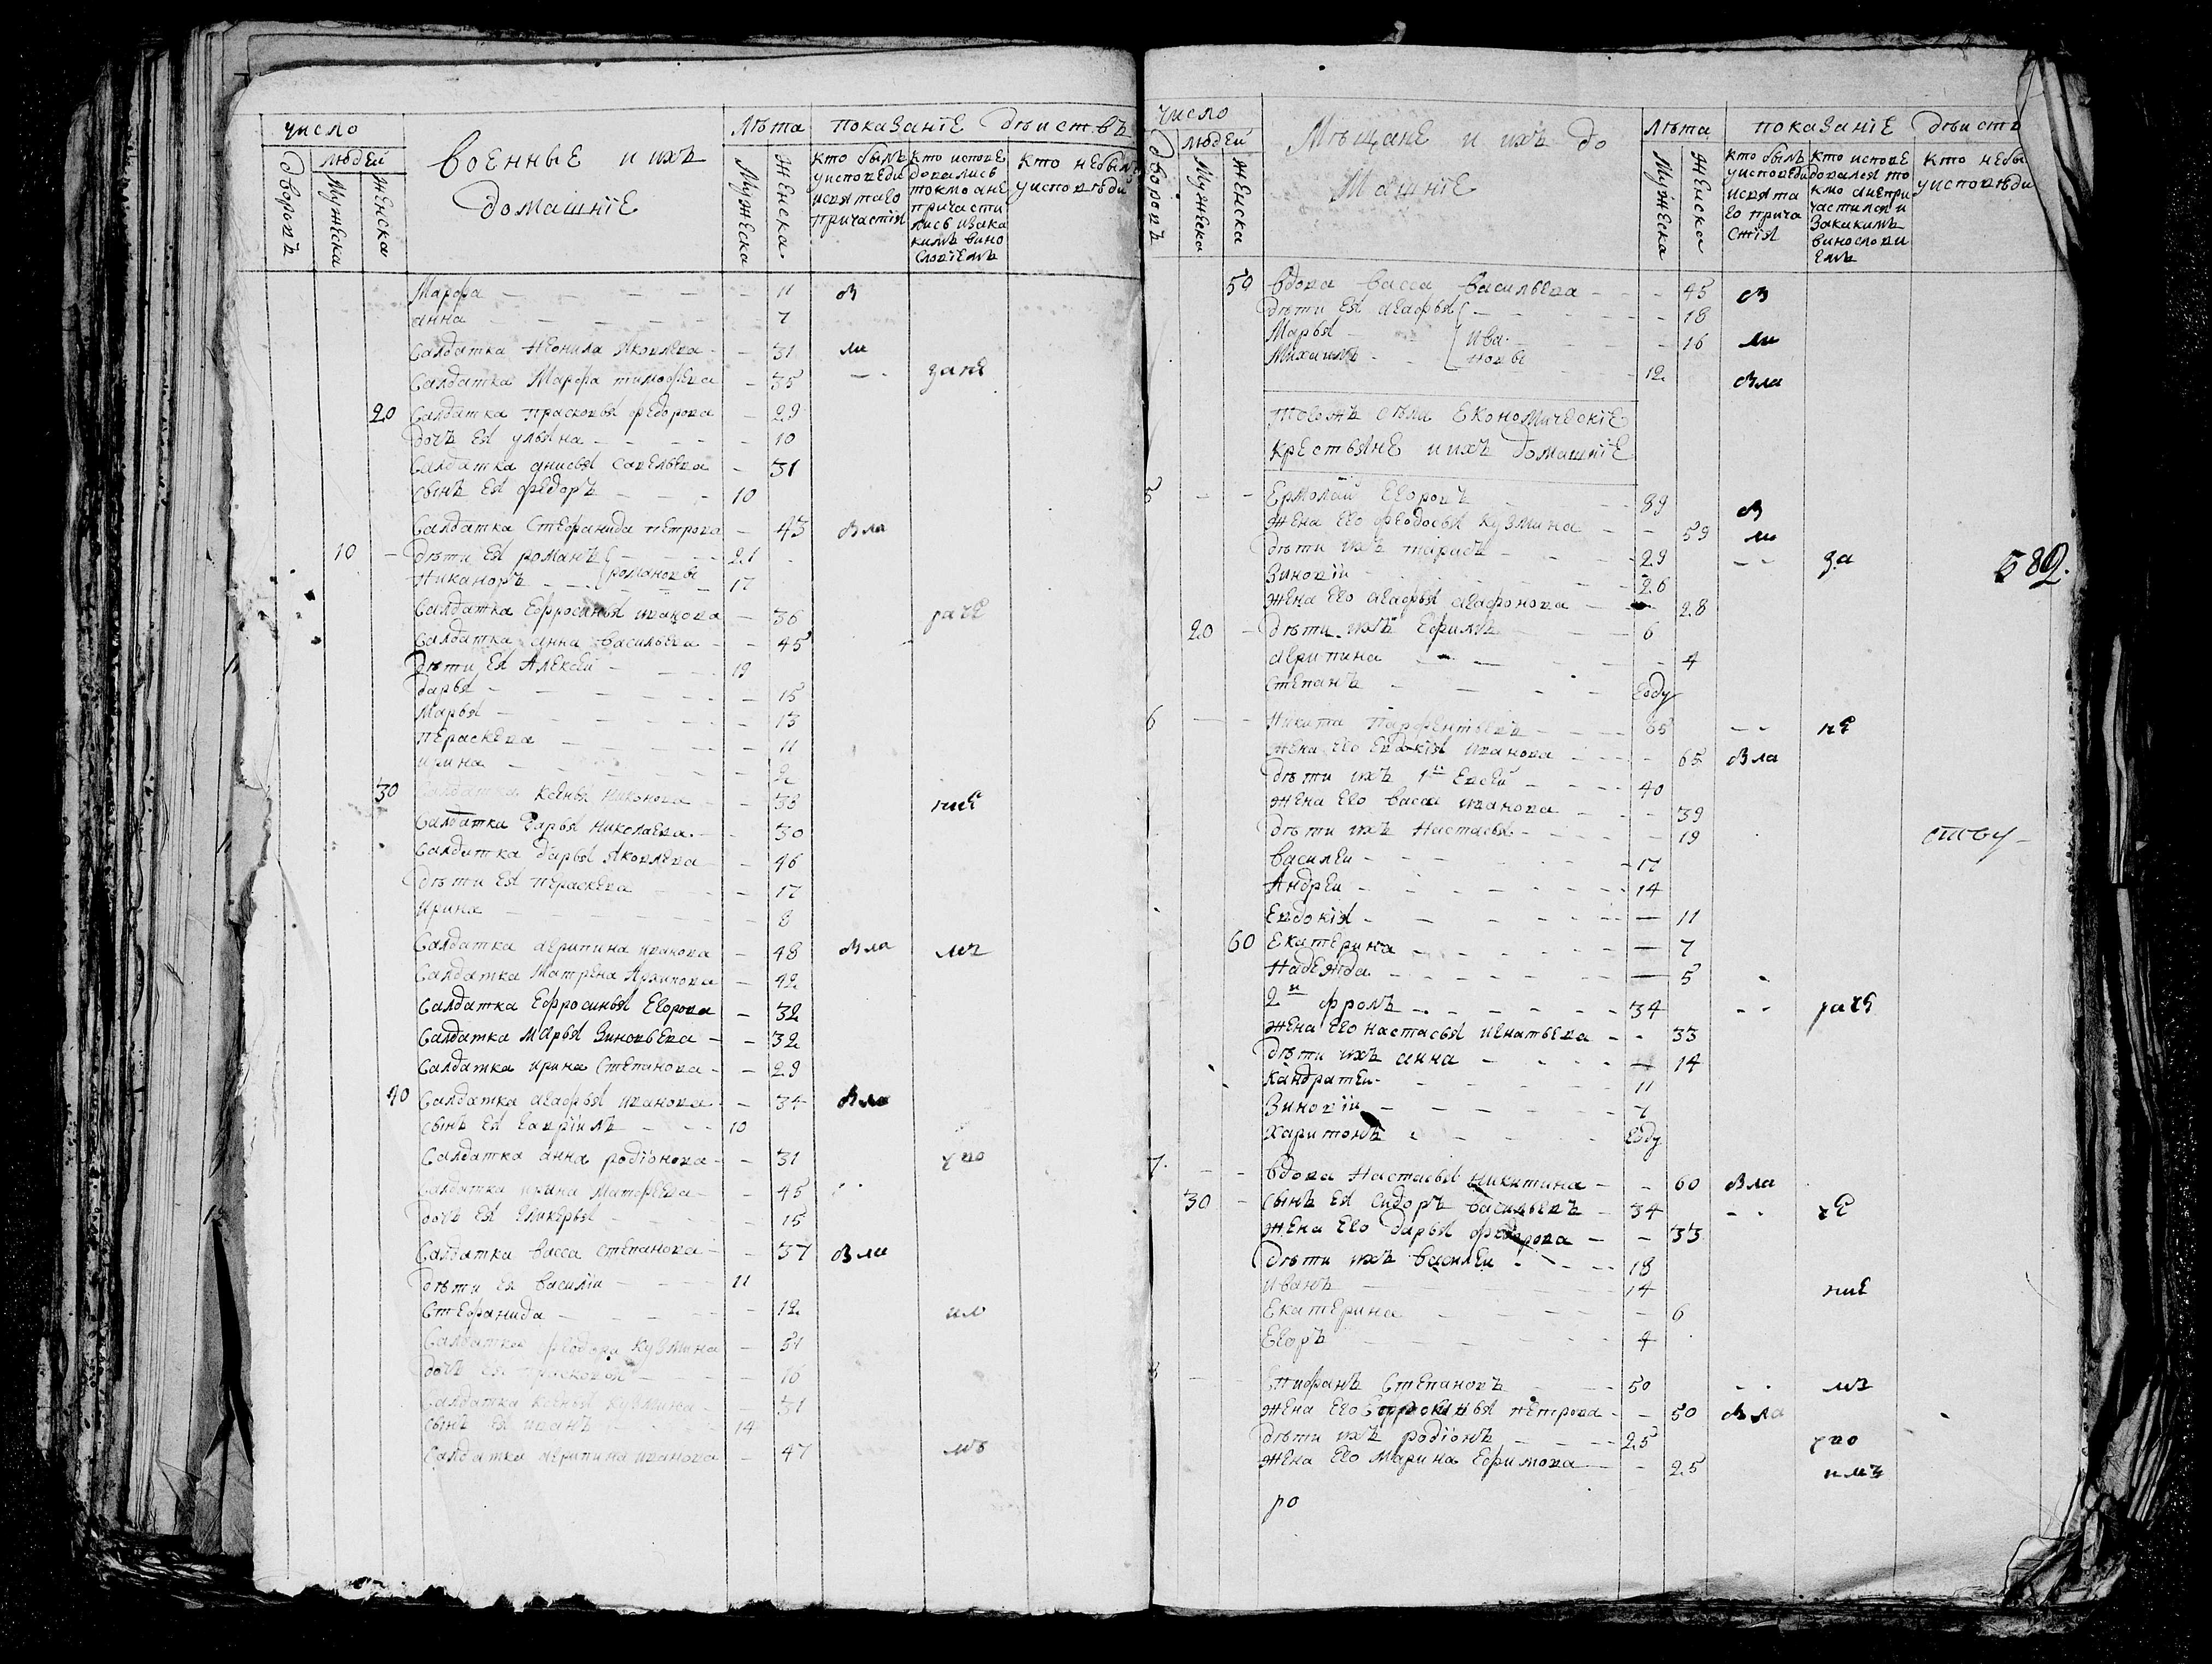 число
людей
дворовъ
Мужеска
женска
военные и ихъ
домашнїе
Лѣта
Мужеска
женска
показанїе дѣиствъ
кто былъ
уисповеди
исвятаго
причастїя
кто испове
довались
токмо ане
причасти
лись изака
кимъ вино
словїемъ
кто небылъ
уисповѣди
Марфа - 11 в
анна - 7
Салдатка Неонила Яковлева - 31 ли
Салдатка Марфа тимофеева - 35
20 Салдатка прасковья федорова - 29
дочь ея ульяна - 10
Салдатка анисья савельева - 31
сынъ ея федоръ - 10
Салдатка Стефанида петрова - 43 вла
10 - дѣти ея романъ - 21
Никаноръ - романовы 17
Салдатка Ефросинья иванова - 36 раче
Салдатка анна васильева - 45
Дѣти ея Алексеи - 19
дарья - 15
Марья - 13
пераскева - 11
ирина - 2
30 Салдатка ксенья никонова - 38 ние
Салдатка дарья николаева - 30
Салдатка дарья Яковлева - 46
Дѣти ея пераскева - 17
Ирина - 8
Салдатка агрипина иванова - 48 вла мъ
Салдатка Матрена Архипова - 42
Салдатка Ефросинья Егорова - 32
Салдатка Марья Зиновьева - 32
Салдатка ирина Степанова - 29
40 Салдатка агафья иванова - 34 вла
сынъ ея гаврїилъ - 10
Салдатка анна родїонова - 31 упо
Салдатка ирина Матфеева - 45
дочь ея гликерья - 15
Салдатка васса степанова - 37 вла
дѣти ея василїи - 11
Стефанида - 12
Салдатка феодора кузмина - 51
дочь ея прасковья - 16
Салдатка ксенья кузмина - 31
сынъ ея иванъ - 14
Салдатка агрипина иванова - 47 мъ
число
людей
дворовъ
Мужеска
женска
Мѣщане и ихъ до
машнїе
лѣта
Мужеска
женска
показанїе дѣистъ
кто былъ
уисповеди
исвята
го прича
стїя
кто испове
довался то
кмо анепри
частился и
Закакимъ
винослови
емъ
кто небы
уисповѣди
50 вдова васса васильева - 45 в
дѣти ея агафья - 18
Марья - ива- 16 ли
Михаилъ - новы
12 вла
тогожъ села Економическїе
крестьяне и ихъ домашнїе
5 - - Ермолай Егоровъ 89 в
жена Его феодосья кузмина - 59 ли
дѣти ихъ тарасъ - 29 - - за
Зиновїи - 26
жена Его агафья агафонова - 28
582.
20 - дѣти ихъ Ефимъ - 6
агрипина - 4
степанъ - году
6 - - Никита парфентьевъ - 65 - - не
жена Его Евдокїя иванова - 65 вла
дѣти ихъ 1й Евсей - 40
жена Его васса иванова - 39
дѣти ихъ Настасья - 19
василеи - 17
Андреи - 14
Евдокїя - 11
60 Екатерина - 7
Надежда - 5
2й фролъ - 34 - - раче
жена Его настасья игнатьева - 33
дѣти ихъ анна - 14
кандратеи - 11
Зиновїи - 7
Харитонъ - году
7 - - вдова Настасья Никитина - 60 вла
30 - сынъ ея Сидоръ васильевъ - 34 - -
жена Его дарья федорова - 33
дѣти ихъ василеи - 18
иванъ - 14 ние
Екатерина - 6
Егоръ - 4
- - Степановъ - 50 - - мъ
жена Его Ефросинья петрова - 50 вла
дѣти ихъ родїонъ - 25 упо
жена Его марина Ефимова - 25
ро